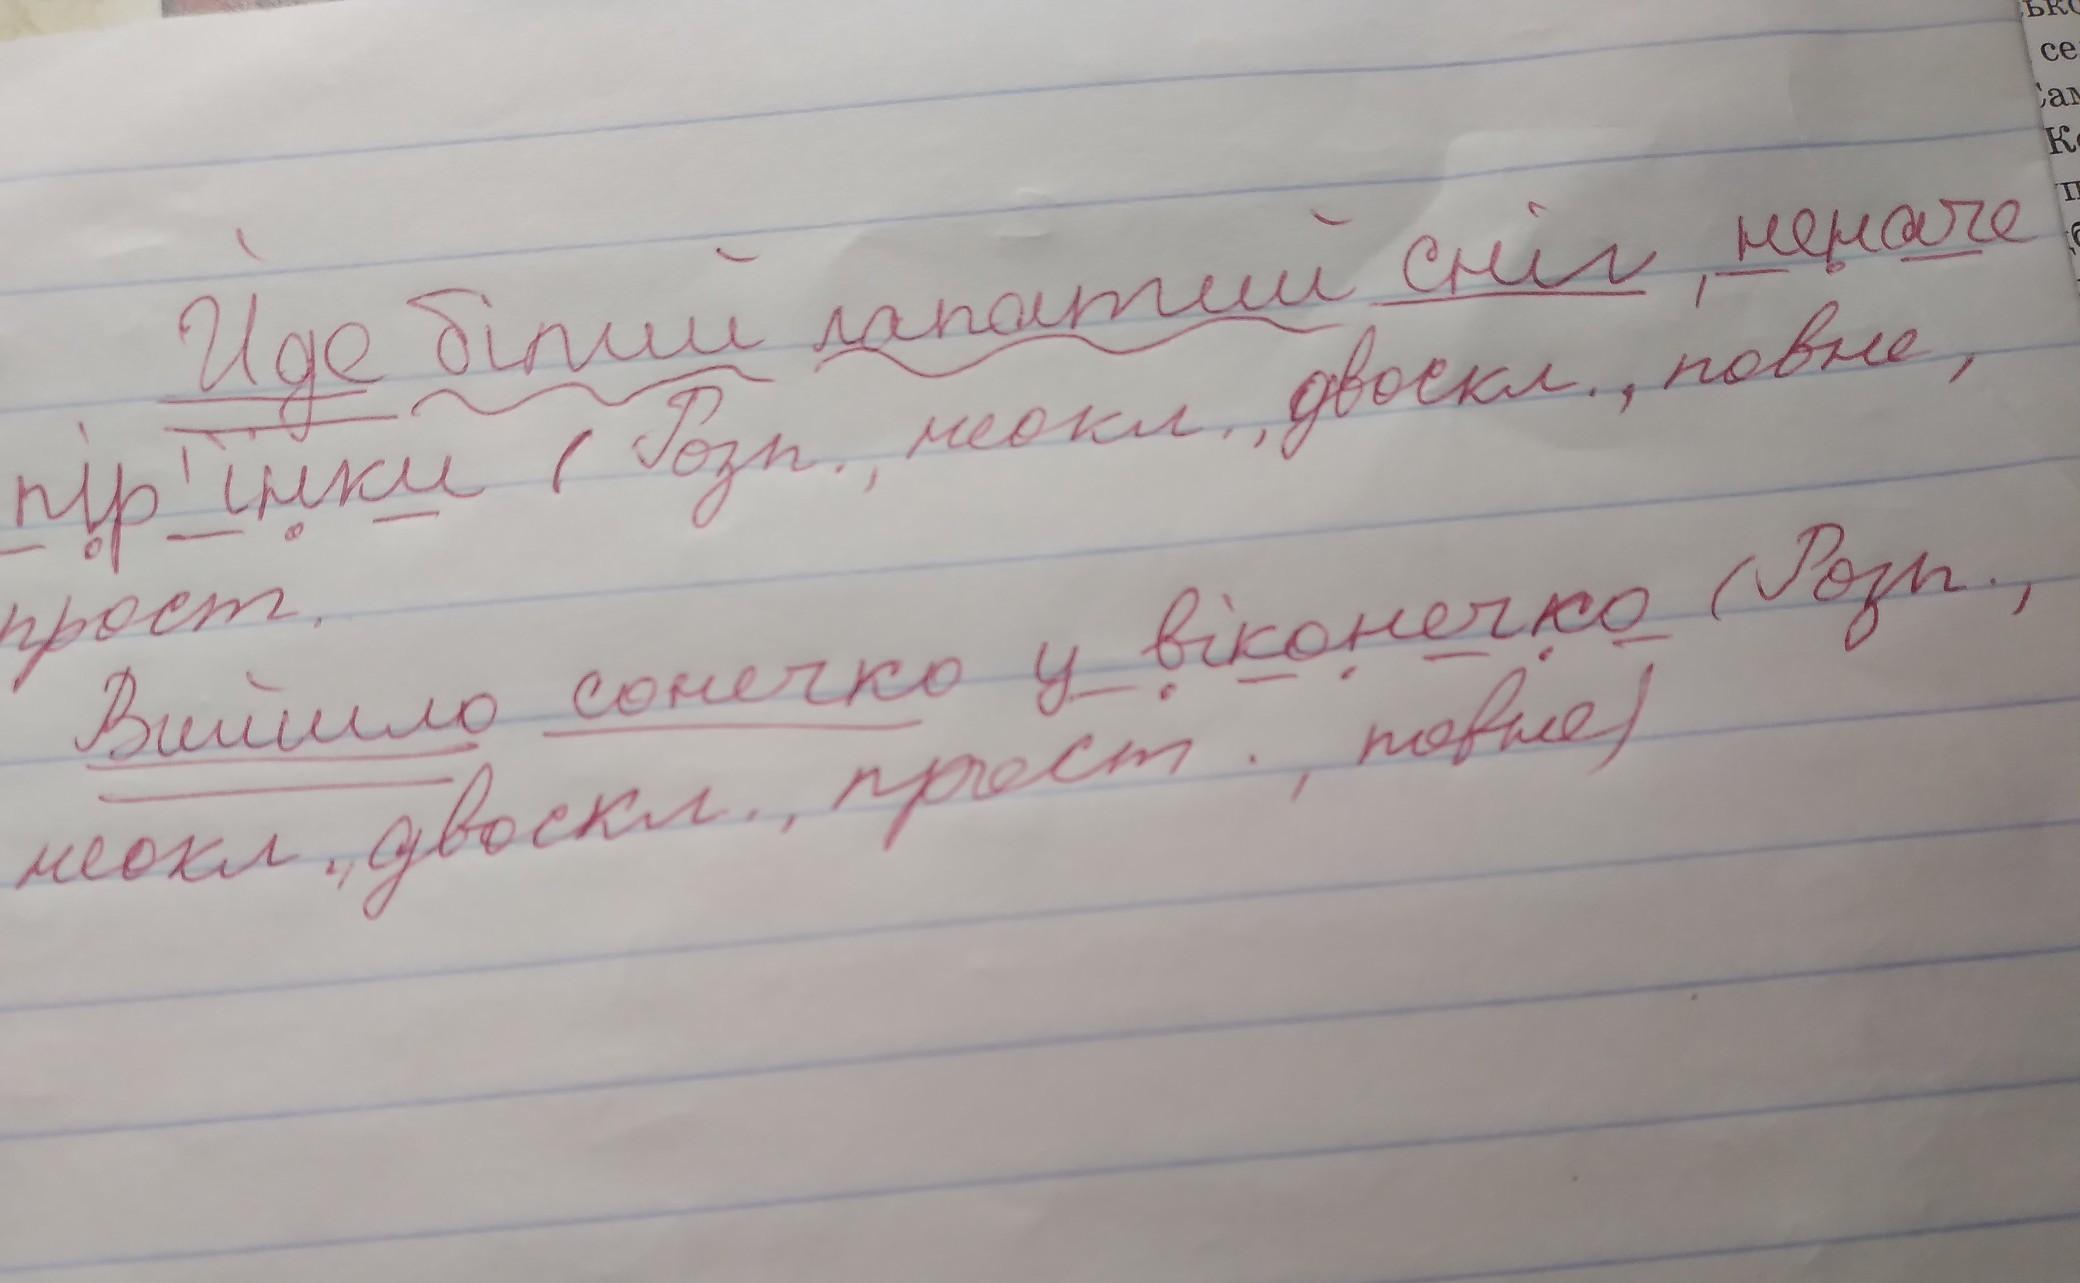 Йде білий лапатий сніг, неначе
пір'їнки (Розп., неокл., двоскл., повне,
прост.
Вийшло сонечко у віконечко (Розп.,
неокл., двоскл., прост., повне)